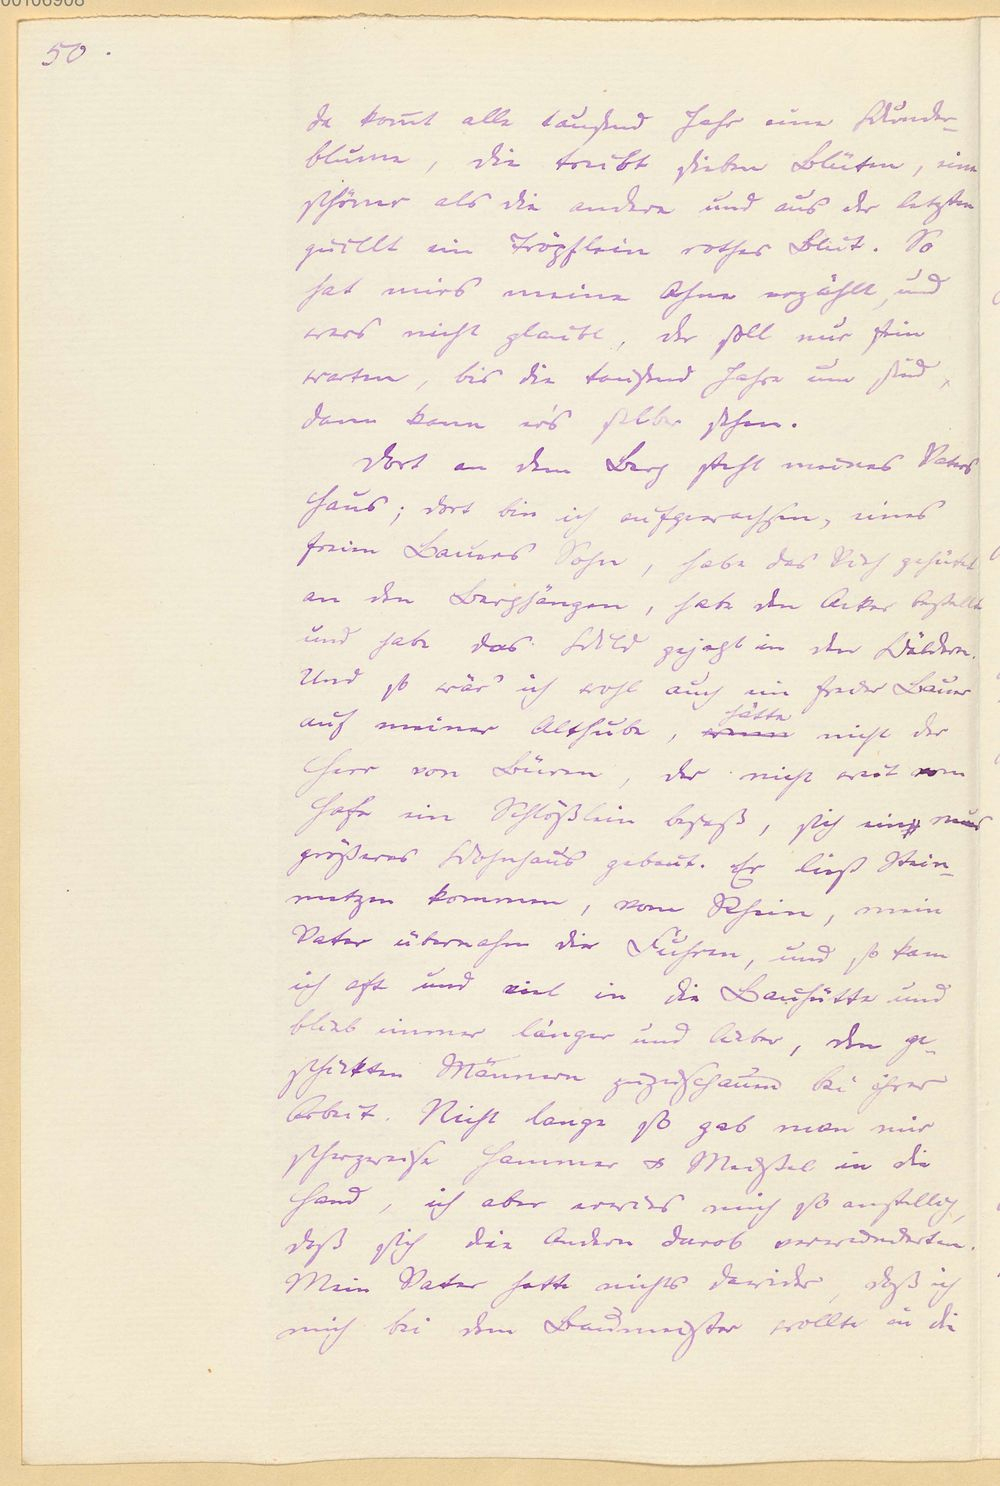 00106908
50.
da kom̅t alle tausend Jahr eine Wunder-
blume, die treibt sieben Blüten, eine
schöner als die andere und aus der letzten
quillt ein Tröpflein rothes Blut. So
hat mirs meine Ahne erzählt, und
wers nicht glaubt, der soll nur fein
warten, bis die tausend Jahre um sind,
dann kann ers selber sehen.
Dort an dem Berg steht meines Vaters
Haus; dort bin ich aufgewachsen, eines
freien Bauers Sohn, habe das Vieh gehütet
an den Berghängen, habe den Acker bestellt
und habe das Wild gejagt in den Wäldern.
Und so wär' ich wohl auch ein freier Bauer
hätte
auf meiner Althube, wenn nicht der
Herr von Büren, der nicht weit vom
Hofe ein Schlößlein besaß, sich ein neues
größeres Wohnhaus gebaut. Er ließ Stein-
metzen kommen, vom Rhein, mein
Vater übernahm die Fuhren, und so kam
ich oft und viel in die Bauhütte und
blieb immer länger und lieber, den ge-
schickten Männern zuzuschauen bei ihrer
Arbeit. Nicht lange so gab man mir
scherzweise Hammer & Meißel in die
Hand, ich aber erwies mich so anstellig,
daß sich die Andern darob verwunderten.
Mein Vater hatte nichts dawider, daß ich
mich bei dem Baumeister wollte in die